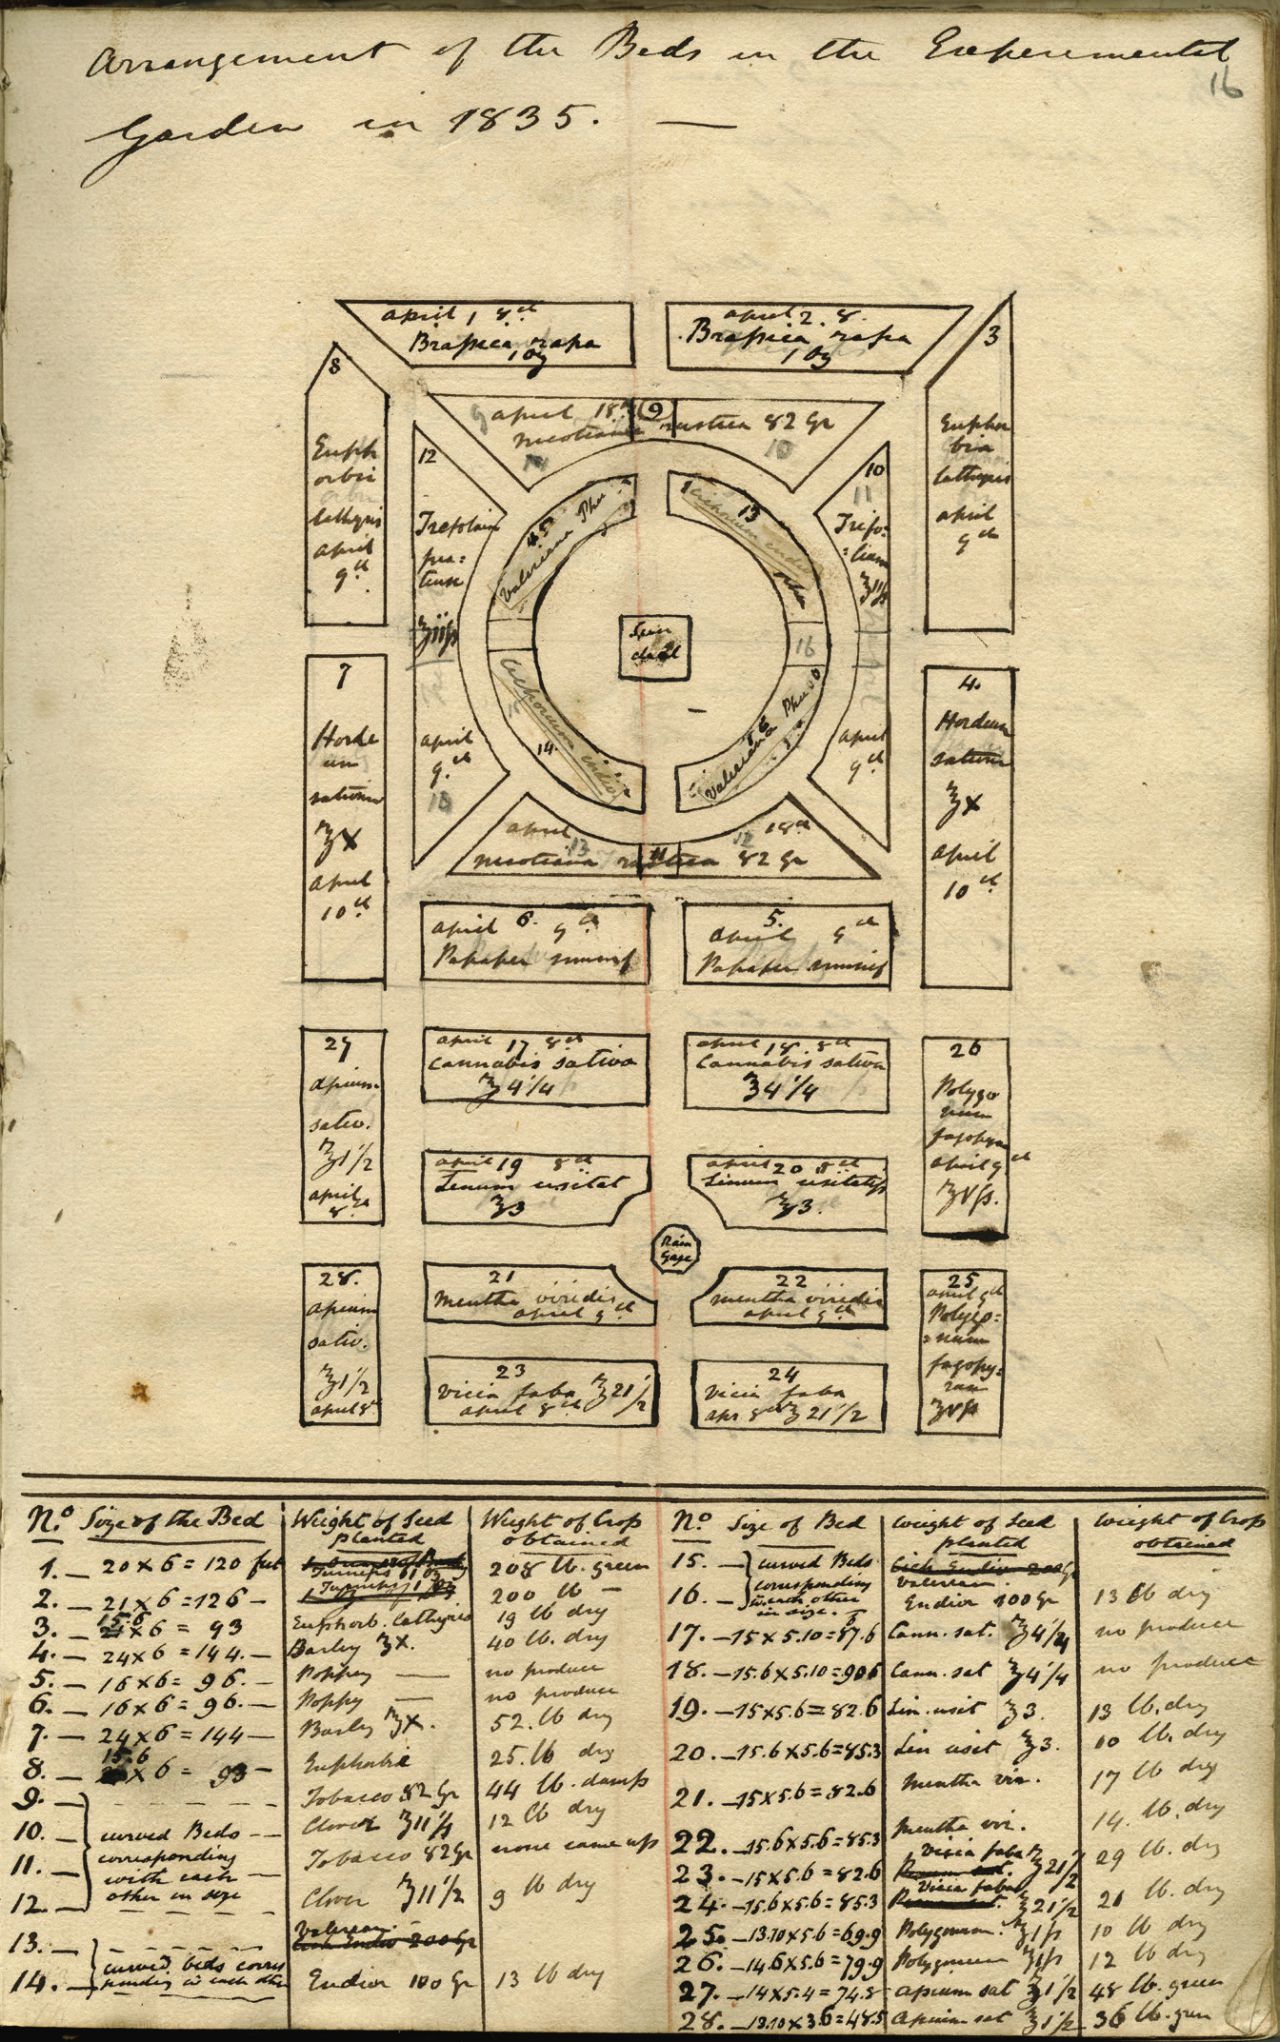 Arrangement of the Beds in the Experimental
16
Garden in 1835. —
april 1 8th
Brassica rapa
1 oz
april 2. 8.
Brassica rapa
1 oz
3
Euphor
bia
lathyris
april
9th
8
Euph
orbia
lathyris
april
9th
april 18th 9
nicotiana rustica 82 Gr
10
12
Trifolium
pra=
tense
april
9th
10
11
Trifo:
=lium
april
9th
Valeriana Phu
13
Cichorium endiv
Sun
dial
16
Cichorium endiv
14.
Valeriana Phu
april 18th
nicotiana rustica 82 Gr
7
Horde
um
sativum
ʒx
april
10th
4.
Hordeum
sativum
ʒx
april
10th
april 6. 9th
Papaver somnif
5.
april 9th
Papaver somnif
27
apium
sativ.
ʒ1 1/2
april
8th
april 17 8th
Cannabis sativa
ʒ4 1/4
april 18. 8th
Cannabis sativa
ʒ4 1/4
26
Polygo
num
fagopyrum
april 9th
april 19 8th
Linum usitat
ʒ3
april 20 8th
Linum usitatiss
ʒ3.
Rain
Gage
28.
apium
sativ.
ʒ1 1/2
april 8th
21
mentha viridis
april 9th
22
mentha viridis
april 9th
25
april 9th
Polygo=
=num
fagopy=
rum
23
vicia faba ʒ21/2
april 8th
24
vicia faba
apr 8th ʒ21/2
No. Size of the Bed Weight of Seed planted Weight of Crop obtained
1. — 20 x 6 = 120 feet Turnips 1 oz 208 lb. green
2. — 21 x 6 = 126 — Turnips 1 oz 200 lb —
3. — 15.6 x 6 = 93 Euphorb. Lathyris 19 lb dry
4. — 24 x 6 = 144. — Barley ʒx. 40 lb. dry
5. — 16 x 6 = 96. — Poppy — no produce
6. — 16 x 6 = 96. — Poppy — no produce
7. — 24 x 6 = 144 — Barley ʒx. 52. lb dry
8. — 15.6 x 6 = 93 — Euphorbia 25. lb dry
9. — Tobacco 82 Gr 44 lb. damp
10. — curved Beds — Clover 12 lb dry
11. — corresponding Tobacco 82 Gr none came up
with each
12. — other in size Clover ʒ11 1/2 9 lb dry
13. — Valerian. Cich Endiv 200 Gr
14. — curved beds corres
ponding to each other Endive 100 Gr 13 lb dry
No. Size of Bed Weight of Seed planted Weight of Crop obtained
15. — curved Beds Cich Endiv 200 Gr Valerian.
16. — corresponding
to each other
in size. Endive 100 Gr 13 lb dry
17. — 15 x 5.10 = 87.6 Cann. sat. ʒ4 1/4 no produce
18. — 15.6 x 5.10 = 90.5 Cann. sat ʒ4 1/4 no produce
19. — 15 x 5.6 = 82.6 Lin. usit ʒ3. 13 lb. dry
20. — 15.6 x 5.6 = 85.3 Lin usit ʒ3. 10 lb. dry
21. — 15 x 5.6 = 82.6 mentha vir. 17 lb dry
22. — 15.6 x 5.6 = 85.3 mentha vir. 14. lb. dry
23. — 15 x 5.6 = 82.6 Vicia faba ʒ21/2 29 lb. dry
24. — 15.6 x 5.6 = 85.3 Vicia faba ʒ21/2 21 lb. dry
25. — 13.10 x 5.6 = 69.9 Polygonum 10 lb dry
26. — 14.6 x 5.6 = 79.9 Polygonum 12 lb dry
27. — 14 x 5.4 = 74.8 apium sat ʒ1 1/2 48 lb. green
28. — 13.10 x 3.6 = 48.5 apium sat ʒ1 1/2 36 lb. green